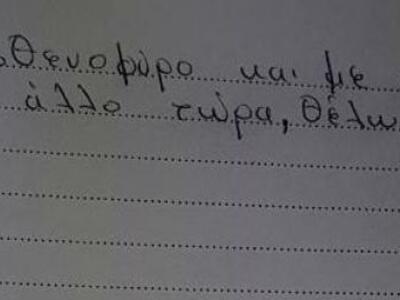 σθενοφόρο και με
άλλο τώρα, θέλω